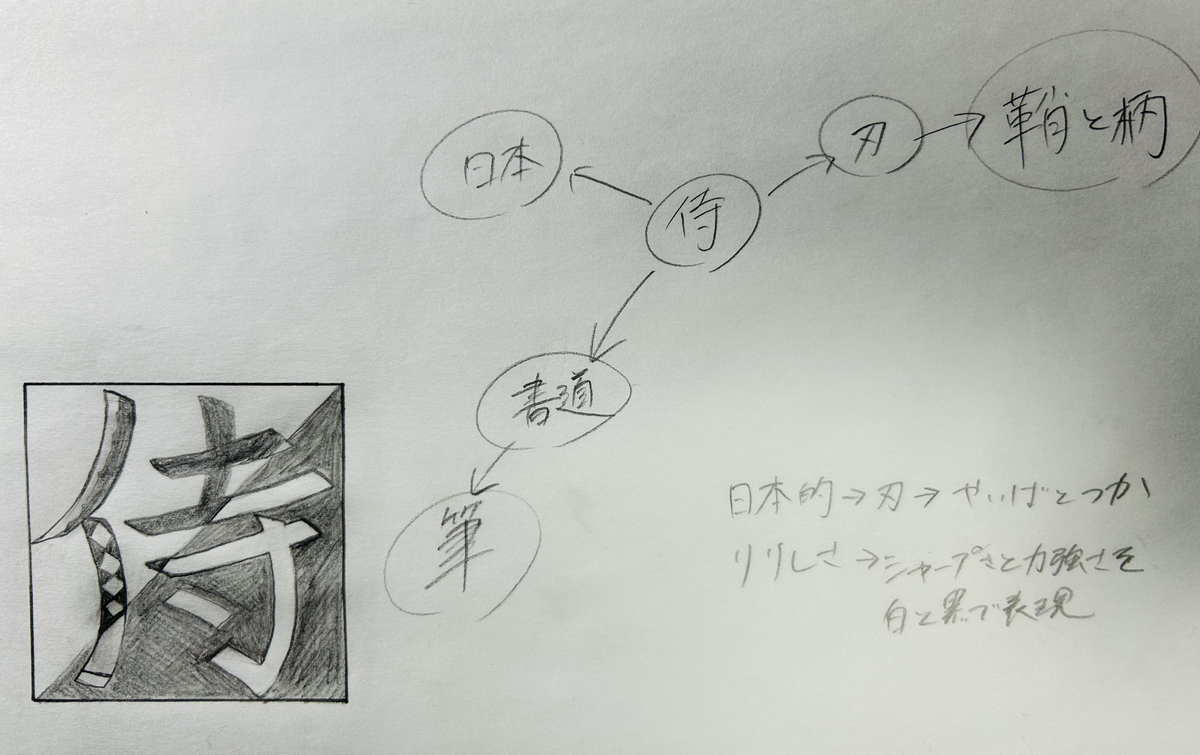 日本
侍
刃
鞘と柄
書道
筆
侍
日本的→刃→やいばとつか
りりしさ→シャープさと力強さを
白と黒で表現